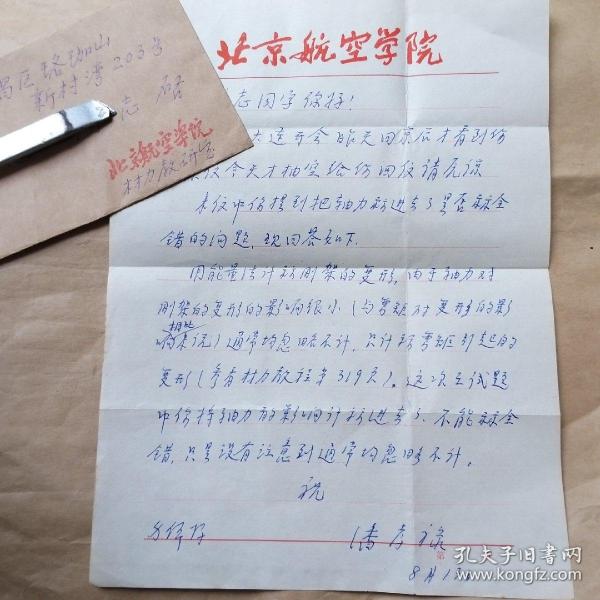 昌区珞珈山
新村湾203号
志 启
北京航空学院
材力教研室
北京航空学院
志同学你好!
大连开会昨天回京后才看到你
来仪今天才抽空给你回仪请原谅
来仪中你提到把轴力标进去了是否算全
错的问题,现回答如下.
用能量法计标刚架的变形,由于轴力对
刚架的变形的影响很小(与弯矩对变形的影
响相比来说)通常均忽略不计,只计标弯矩引起的
变形(参看材力教程第319页)。这次在试题
中你将轴力的影响计标进去了,不能算全
错,只是没有注意到通常均忽略不计。
祝
8月1
孔夫子旧书网
www.kongfz.com